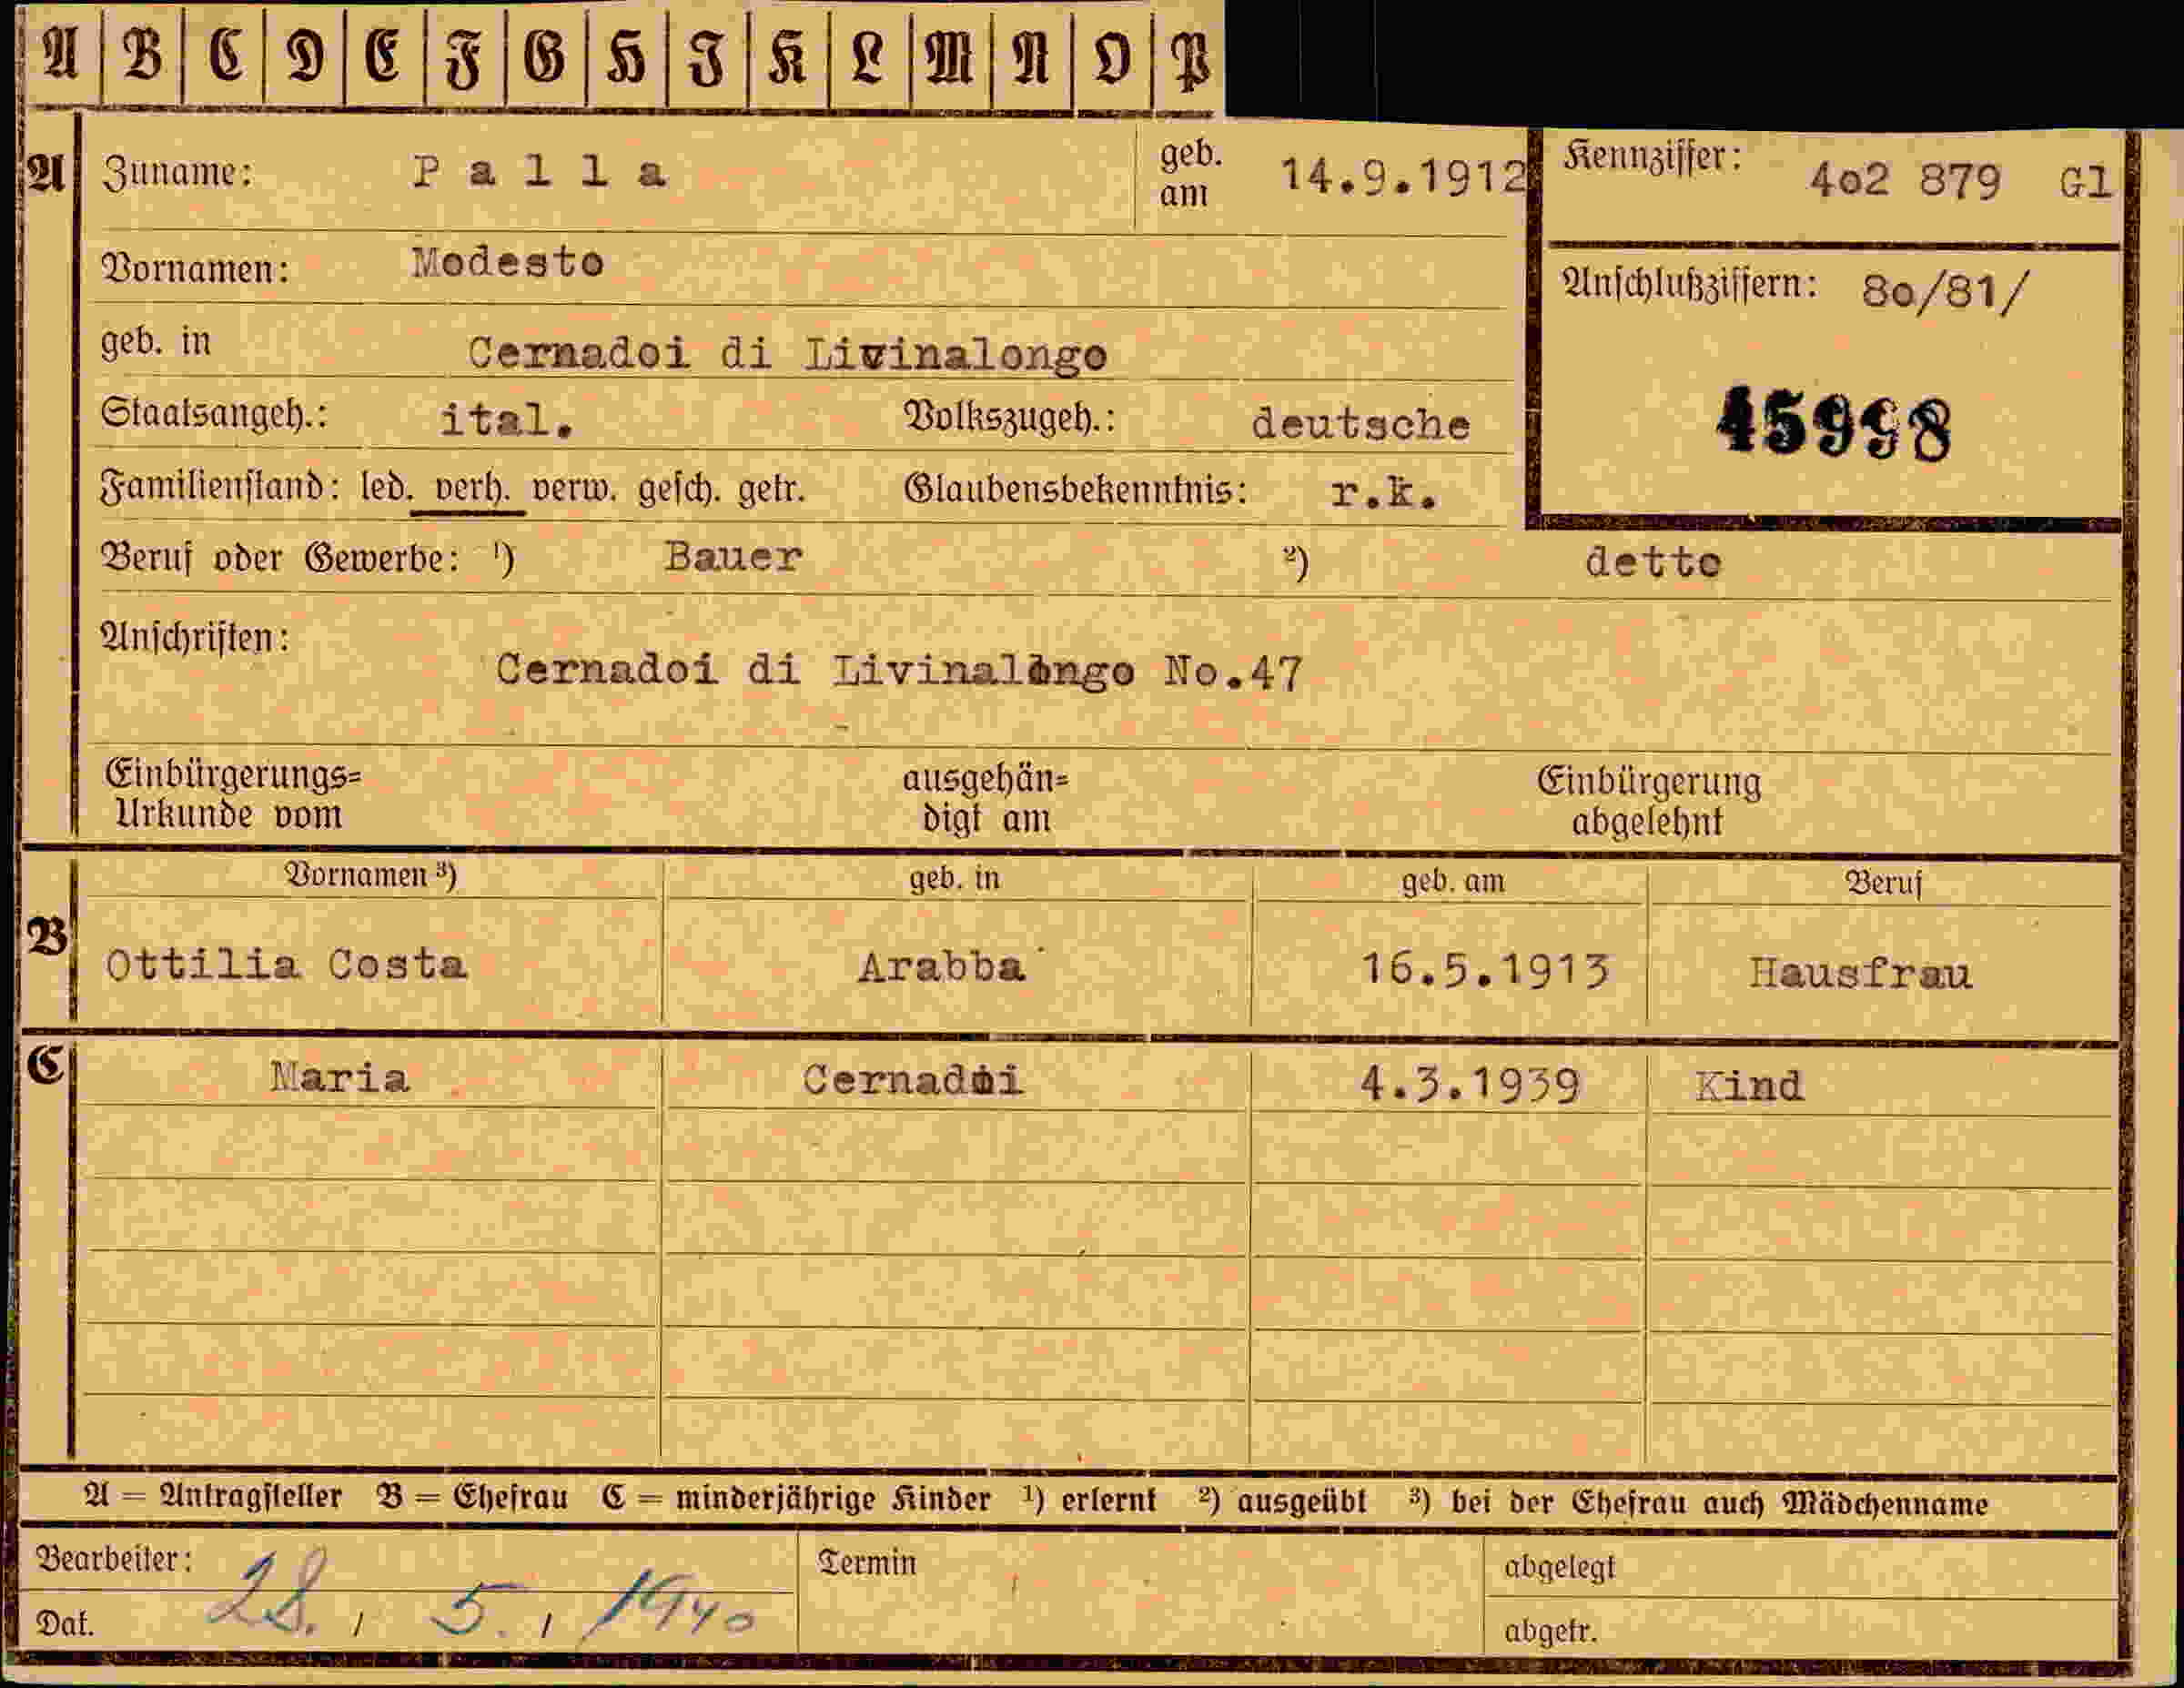 A B C D E F G H I K L M N O P
A Zuname: Palla geb. am 14.9.1912 Kennziffer: 402 879 Gl
Vornamen: Modesto
Anschlußziffern: 80/81/
geb. in Cernadoi di Livinalongo
45998
Staatsangeh.: ital. Volkszugeh.: deutsche
Familienstand: led. verh. verw. gesch. getr. Glaubensbekenntnis: r.k.
Beruf oder Gewerbe: ¹) Bauer ²) detto
Anschriften:
Cernadoi di Livinalongo No.47
Einbürgerungs= ausgehän= Einbürgerung
Urkunde vom digt am abgelehnt
Vornamen ³) geb. in geb. am Beruf
B Ottilia Costa Arabba 16.5.1913 Hausfrau
C Maria Cernadoi 4.3.1939 Kind
A = Antragsteller B = Ehefrau C = minderjährige Kinder ¹) erlernt ²) ausgeübt ³) bei der Ehefrau auch Mädchenname
Bearbeiter: Termin abgelegt
Dat. 28. / 5. / 1940 abgetr.